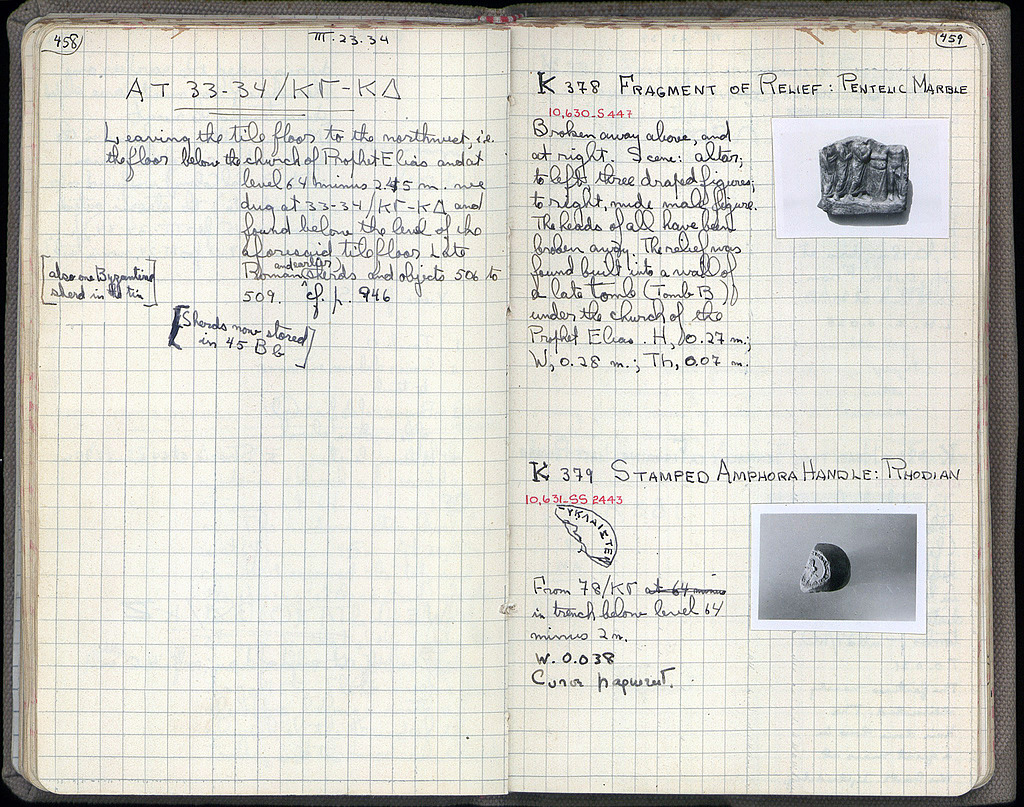 458
III.23.34
AT 33-34/ΚΓ-ΚΔ
Leaving the tile floor to the northwest, i.e.
the floor below the church of Prophet Elias and at
level 64 minus 2.45 m. we
dug at 33-34/ΚΓ-ΚΔ and
found below the level of the
aforesaid tile floor Late
Roman (and earlier) sherds and objects 506 to
509. cf. p. 946
[also one Byzantine
sherd in the tin]
[Sherds now stored
in 45 B 6]
459
K 378 FRAGMENT OF RELIEF: PENTELIC MARBLE
10,630-S 447
Broken away above, and
at right. Scene: altar;
to left three draped figures;
to right, nude male figure.
The heads of all have been
broken away. The relief was
found built into a wall of
a late tomb (Tomb B)
under the church of the
Prophet Elias. H, 0.27 m.;
W, 0.28 m.; Th, 0.07 m.
K 379 STAMPED AMPHORA HANDLE: RHODIAN
10,631-SS 2443
From 78/ΚΓ at 64 minus
in trench below level 64
minus 2 m.
W. 0.038